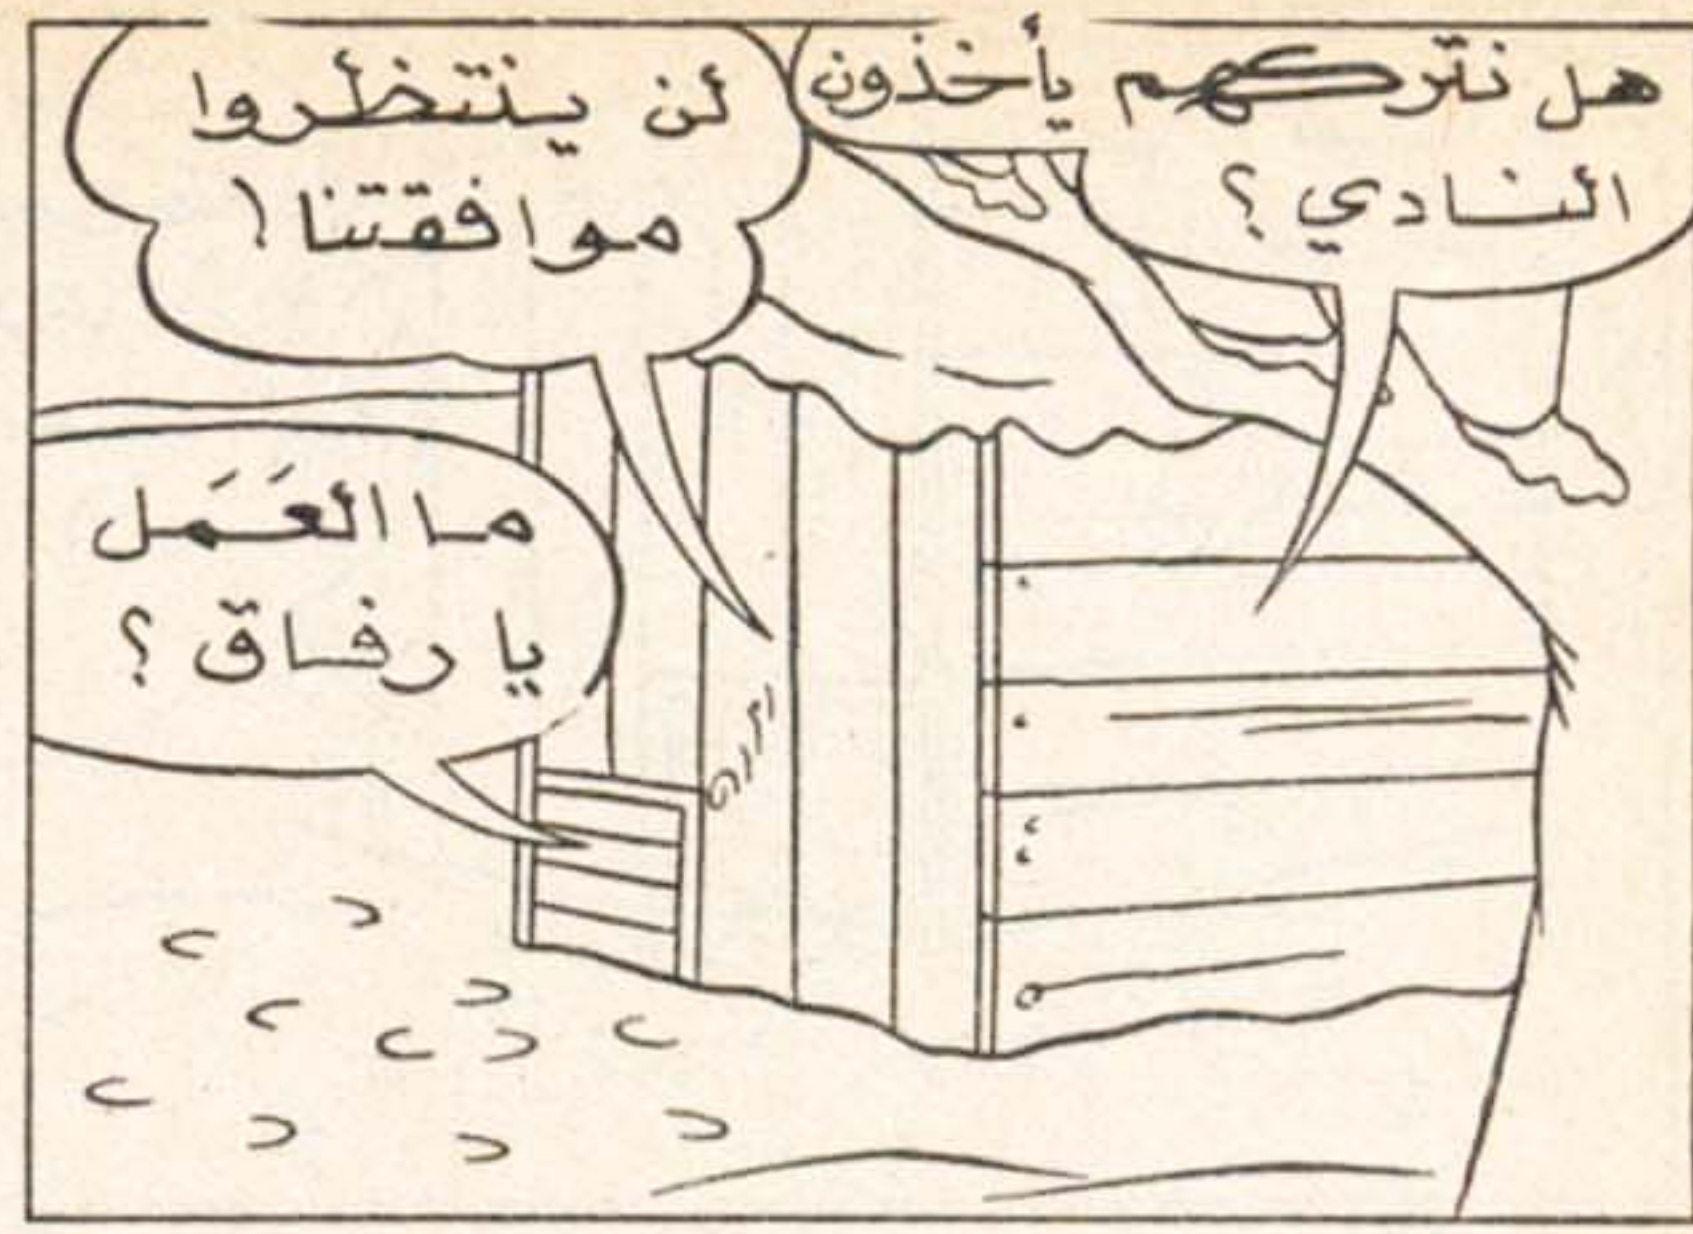 هل نتركهم يأخذون
النادي ؟
لن ينتظروا
موافقتنا !
ما العَمَل
يا رفاق ؟